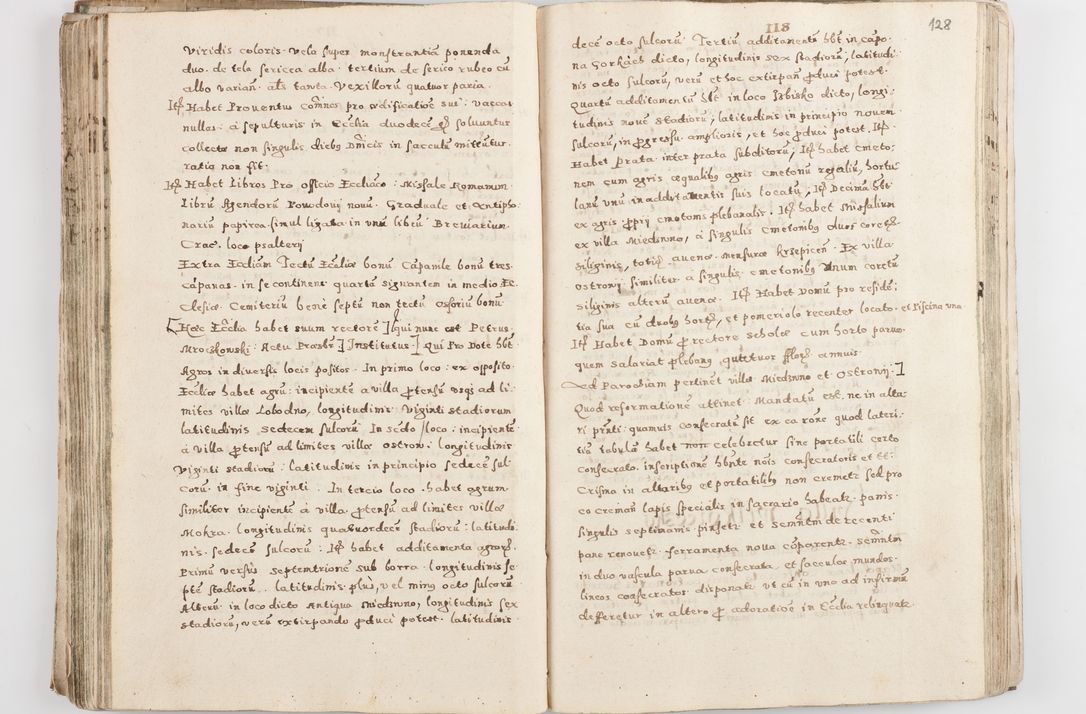 Viridis coloris. Vela super monstrantia ponenda
duo. de tela sericea alba. tertium de serico rubeo cū
albo varian. als tanta. Vexillorū quatuor paria.
Itē Habet Proventus cōmnes pro ædificatioē sui. vaccas
nullas: á sepulturis in Ecclīa duodecē soluuntur
collecta non singulis diebꝯ Dn̄icis in sacculū mittūtur.
ratio non fit.
Itē Habet Libros Pro officio Eccliæo: Missale Romanum
Librū Agendorū Powodouij nouū. Graduale et Antipho
nariū papirea. simul ligata in vnū librū Breuiarium
Crac. loco psalterij
Extra Ecclīam Tectū Ecclīæ bonū. Cāpanile bonū tres
cāpanas. in se continens quartā signantem in medio Ec
clesiæ. Cemiteriū benè septū non tectū osseriū bonū.
[Hæc Ecclīa habet suum rectorē] [qui nunc est Petrus
Mroczkowski: Actu Præsbr] [Institutus.] Qui Pro Dote hb̄t
Agros in diuersis locis positos. In primo loco: ex opposito
Ecclīæ habet agrū: incipientē a villa ꝓtensū vsqꝫ ad li:
mites villæ Lobodno, longitudinis Viginti stadiorum
latitudinis sedecem sulcorū In secdo loco: incipientē
á villa ꝓtensū ad limites villæ ostrow: longitudinis
Viginti stadiorū: latitudinis in principio sedecē sul
corū. in fine viginti. In tercio loco. habet agrum
similiter incipientē á villa. ꝓtensū ad limites villæ
Mokra. longitudinis quatuordecē stadiorū: latitudi
nis. sedecē sulcorū: Itē habet additamenta agror.
Primū versus septemtrionē sub borra. longitudinis se
ptē stadiorū. latitudinis. plus, vel minꝯ octo sulcorū
Alterū in loco dicto Antiqua Miedzwno, longitudinis sex
stadiorū, verū extirpando ꝓduci potest. latitudinis

118
128
decē octo sulcorū. Tertiū additamentū hb̄t in cāpo.
na Gorkach dicto, longitudinis sex stadiorū, latitudi:
nis octo sulcorū, verū et hoc extirpan ꝓduci potest.
Quartū additamentū hb̄t in loco Izbisko dicto, longi:
tudinis nouē stadiorū, latitudinis in principio nouem
sulcorū, in ꝓgressu amplioris, et hoc ꝓduci potest. Itē
Habet Prata inter prata subditorū, Itē habet cmeto:
nem cum agris æqualibꝯ agris cmetonū regaliū, hortu
lanū vnū in additamentis suis locatū. Itē Decimā hb̄t
ex agris ꝓprij cmetonis plebanalis. Itē habet Missalium
ex villa Miedzwno, á singulis Cmetonibꝯ duos coretos
siliginis, totiꝫ auenæ. mensuræ krzepicen. Ex villa
ostrowy similiter á singulis cmetonibꝯ vnum coretū
siliginis alterū auenæ. Itē Habet Domū pro residē:
tia sua cū duobꝯ hortꝫ, et pomeriolo recenter locato. et Piscina vna
Itē Habet Domū ꝓ rectore scholæ cum horto paruo.
quem salariat plebanꝯ quatuor flor. annuis
Ad Parochiam pertinet villæ Miedzwno et Ostrowy:]
Quod reformationē attinet: Mandatū est, ne in alta
ri prn̄ti: quamuis consecratū sit ex ea rone quod lateri:
tiā tabulā habet non celebretur sine portatili certo
consecrato. inscriptionē hb̄nte nois consecratoris et cc:
Crisma in altaribꝯ et portatilibꝯ non cremetr sed pro
eo cremāti lapis specialis in sacrario habeatr. panis.
singulis septimanis pinsetr et semn̄tm de recenti
pane renouetr. ferramenta noua cōparentr. semn̄tm
in duo vascula parua consecrata. et sacculos mundos
lineos consecratos disponatr vt cū in vno ad infirmū
defferetur in altero ꝓ adoratioē in Ecclīa relinquatr.